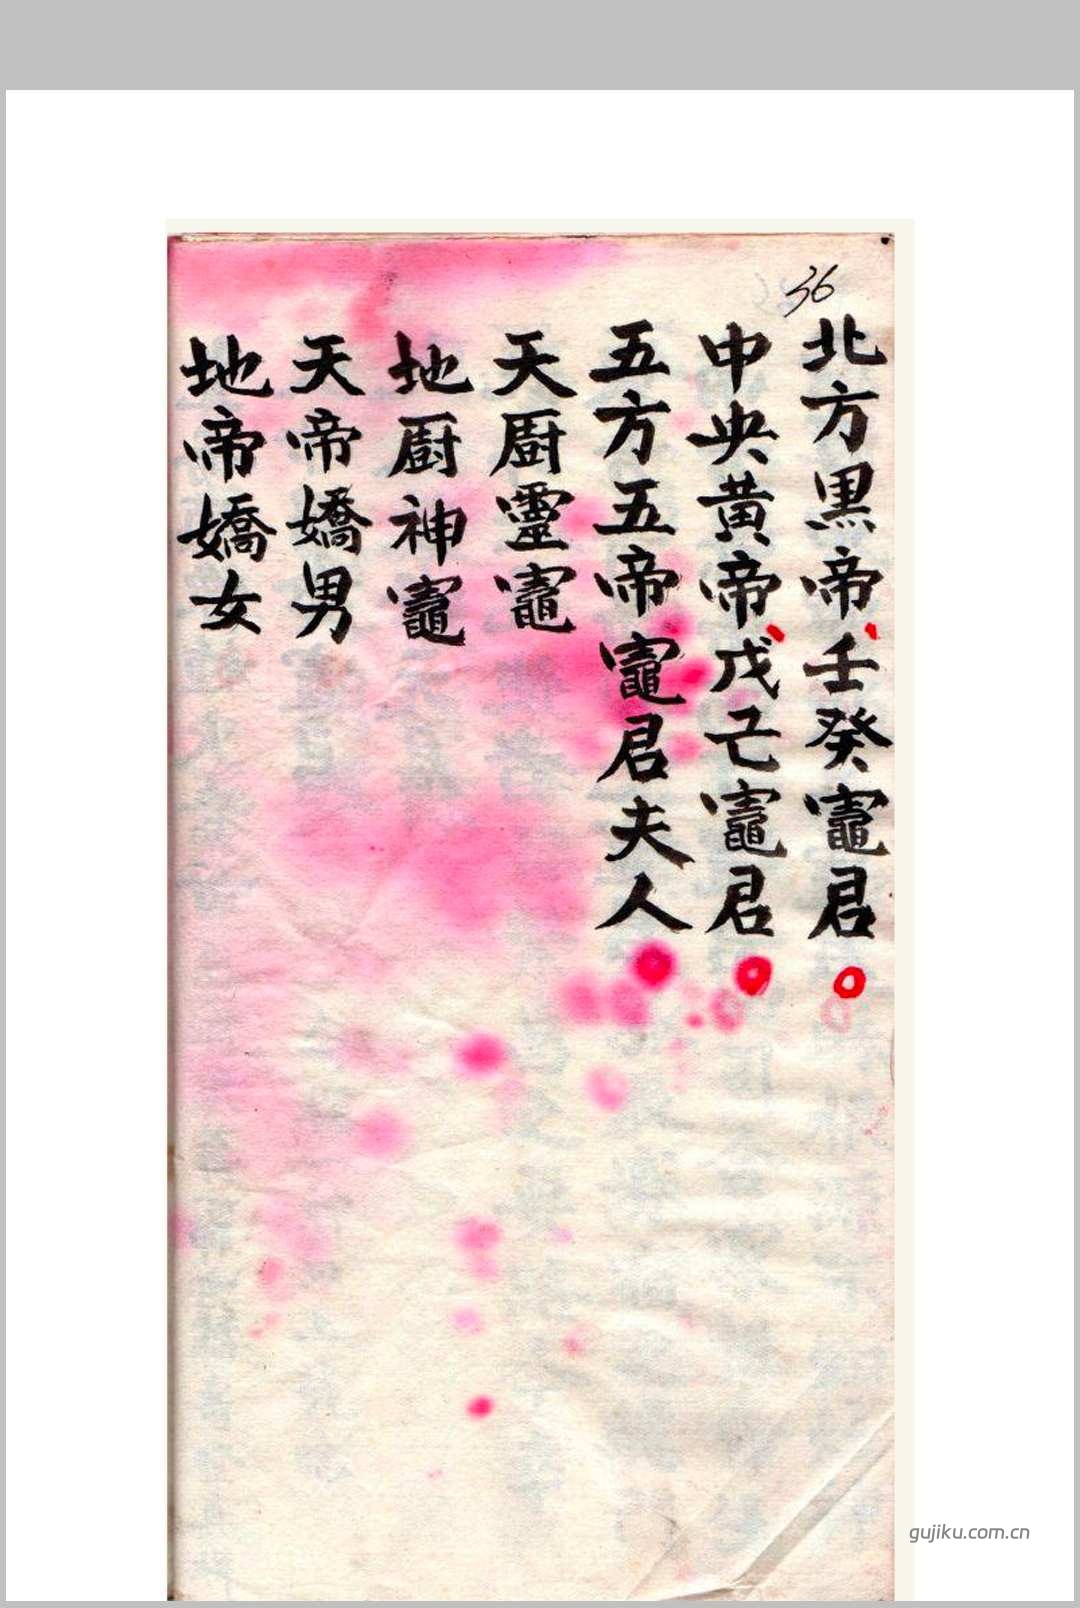 36
北方黑帝壬癸竈君
中央黃帝戊己竈君
五方五帝竈君夫人
天厨靈竈
地厨神竈
天帝嬌男
地帝嬌女
gujiku.com.cn